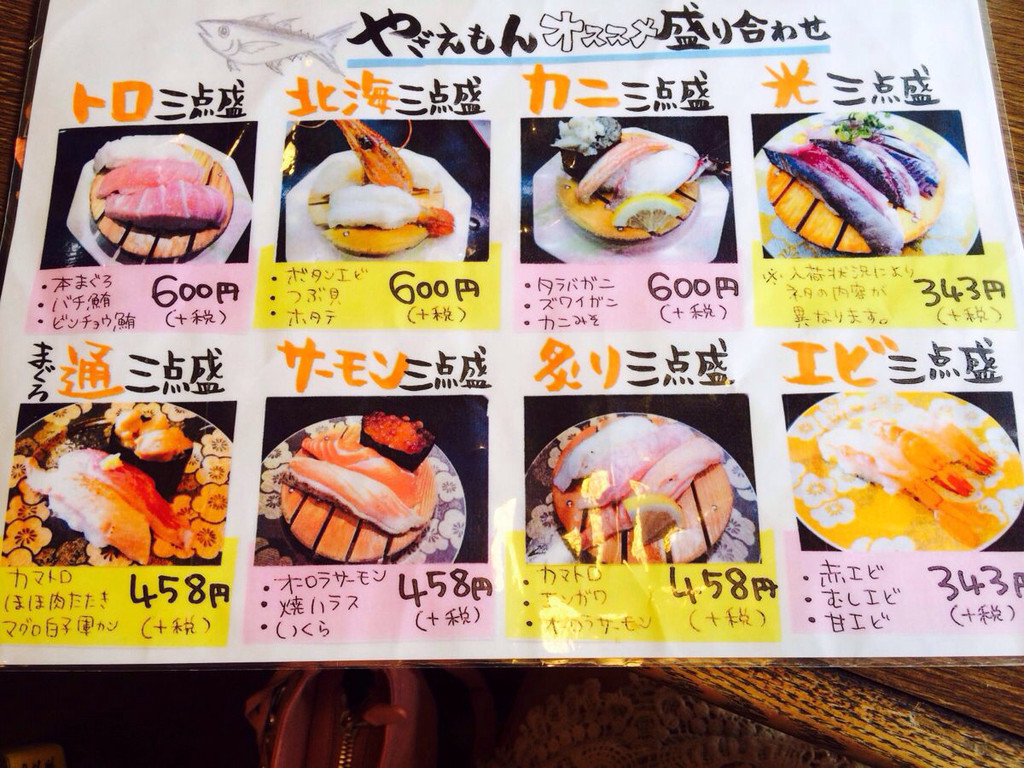 やざえもんオススメ盛り合わせ
トロ三点盛
・本まぐろ
・バチ鮪
・ビンチョウ鮪
600円
(+税)
北海三点盛
・ボタンエビ
・つぶ貝
・ホタテ
600円
(+税)
カニ三点盛
・タラバガニ
・ズワイガニ
・カニみそ
600円
(+税)
光三点盛
※入荷状況により
ネタの内容が
異なります。
343円
(+税)
まぐろ通三点盛
カマトロ
ほほ肉たたき
マグロ白子軍カン
458円
(+税)
サーモン三点盛
・オーロラサーモン
・焼ハラス
・いくら
458円
(+税)
炙り三点盛
・カマトロ
・エンガワ
・オーロラサーモン
458円
(+税)
エビ三点盛
・赤エビ
・むしエビ
・甘エビ
343円
(+税)